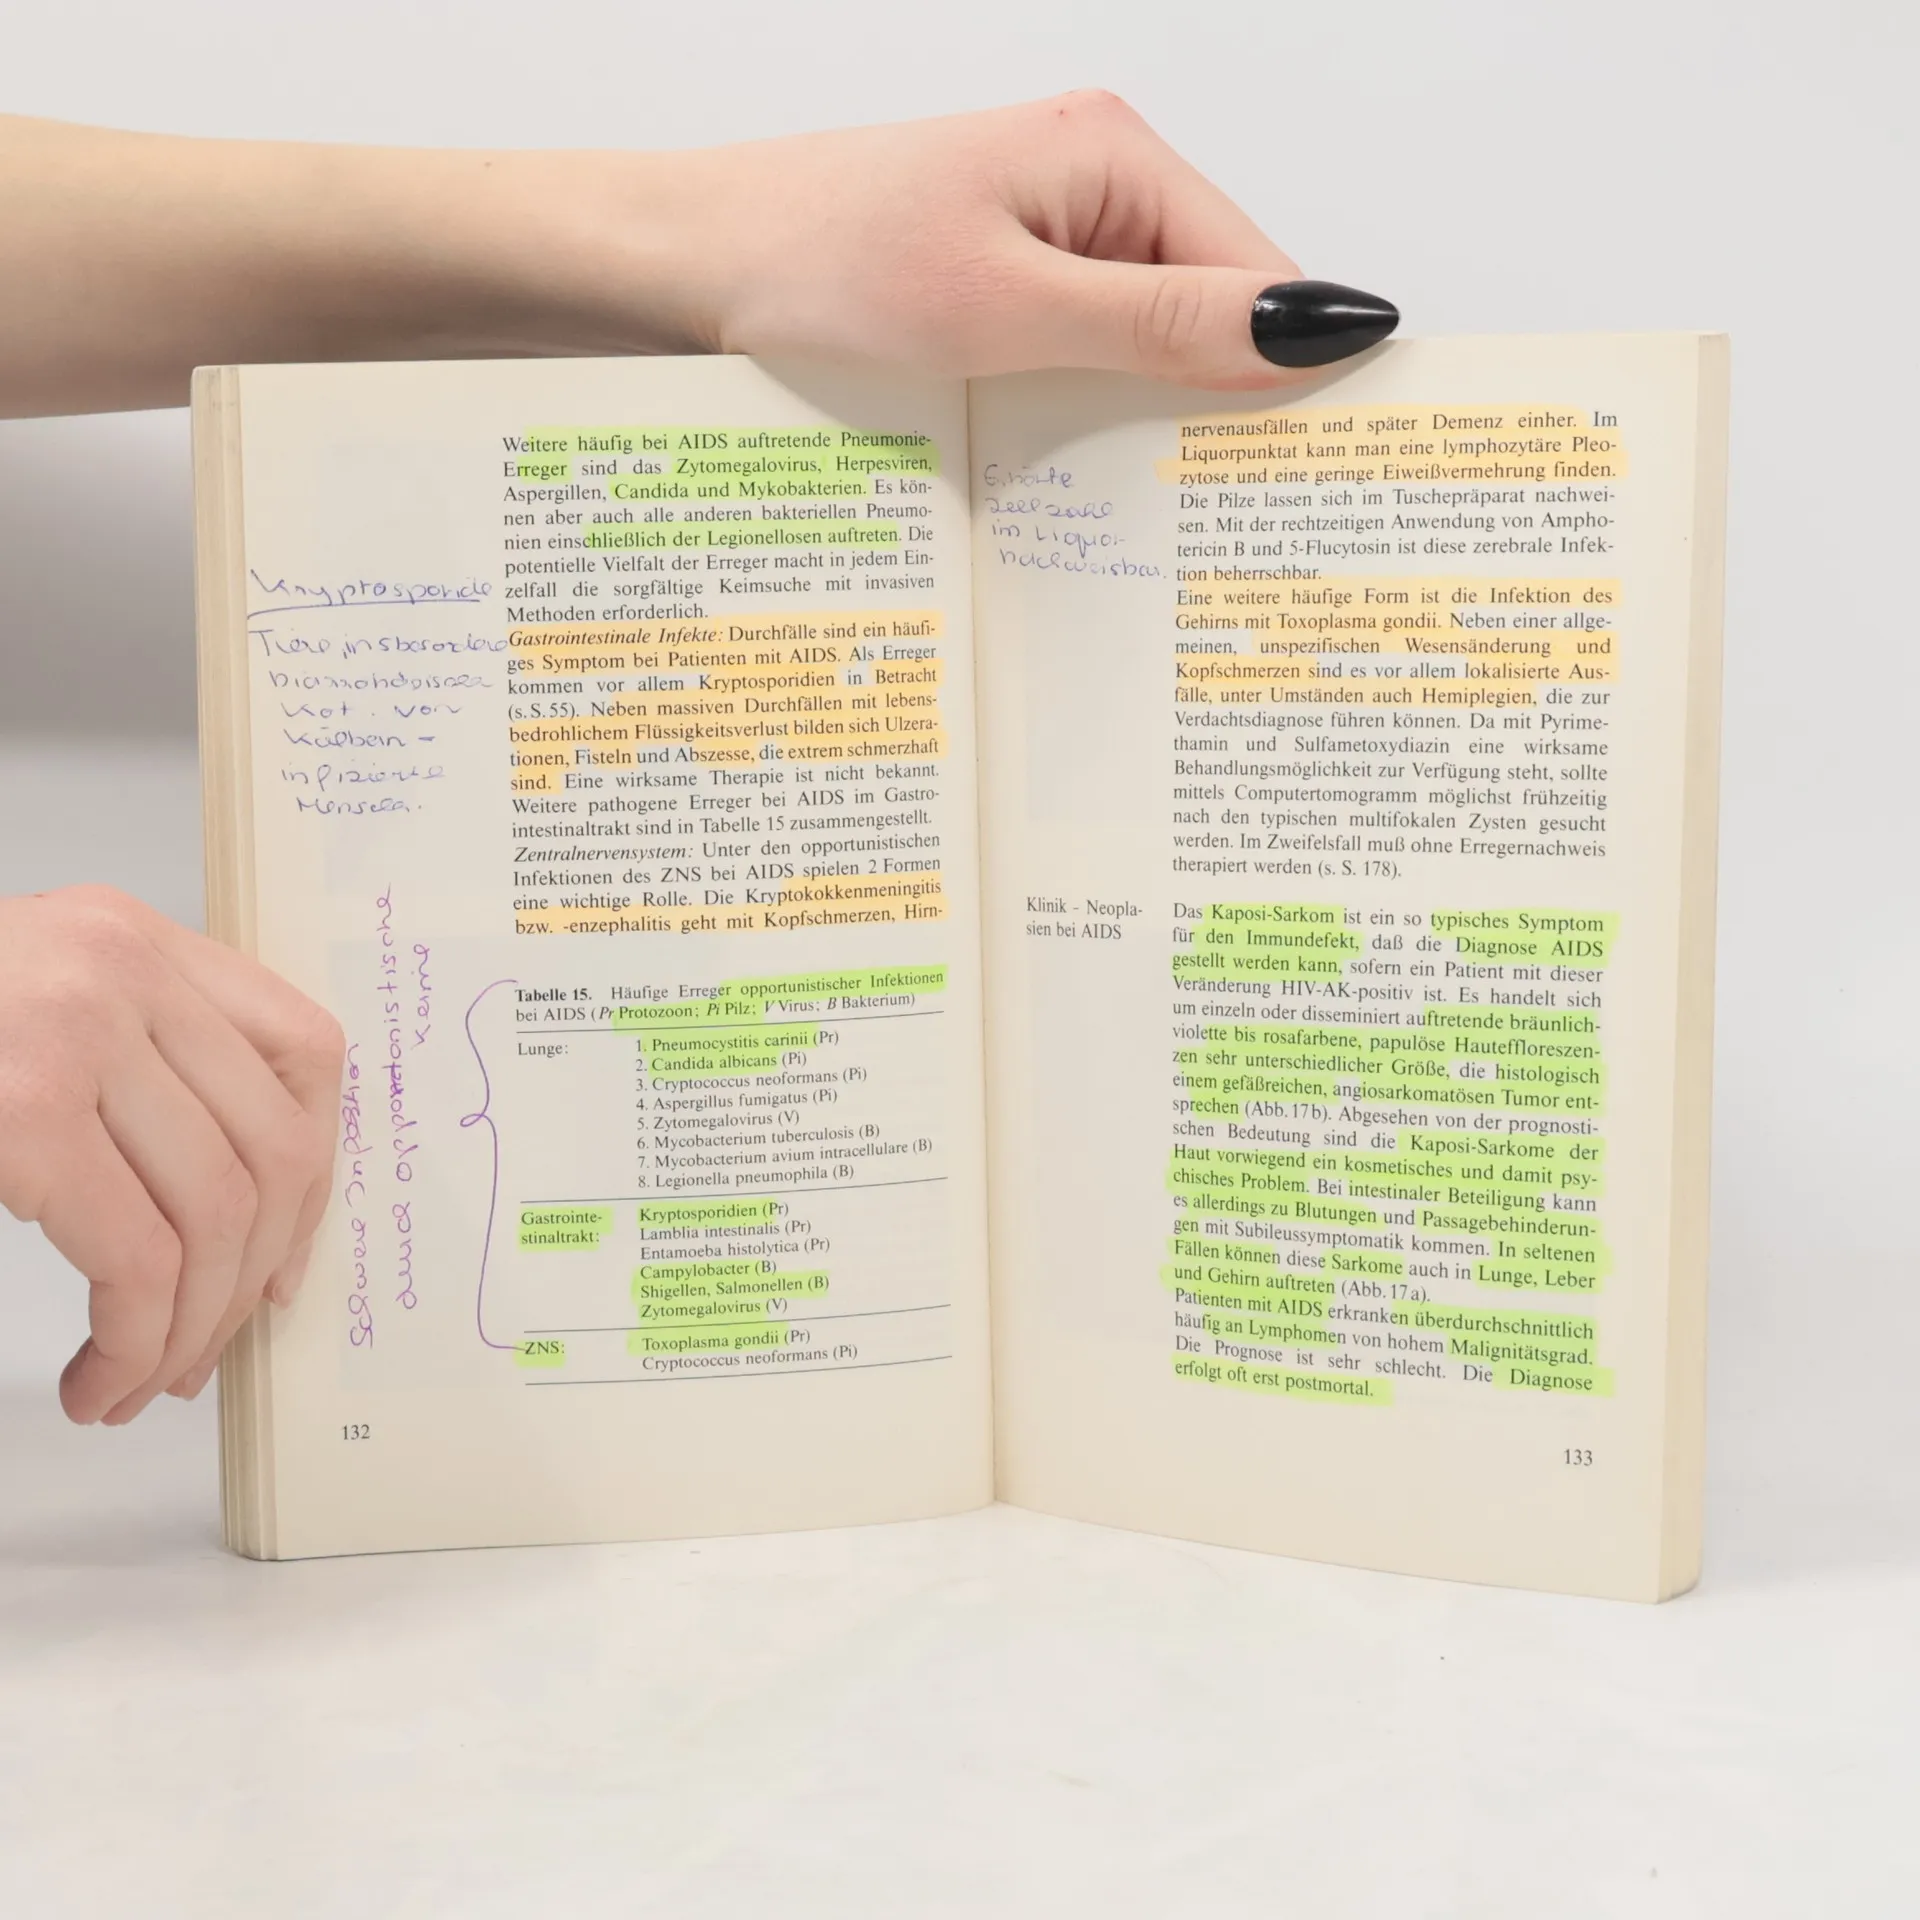 Weitere häufig bei AIDS auftretende Pneumonie-
Erreger sind das Zytomegalovirus, Herpesviren,
Aspergillen, Candida und Mykobakterien. Es kön-
nen aber auch alle anderen bakteriellen Pneumo-
nien einschließlich der Legionellosen auftreten. Die
potentielle Vielfalt der Erreger macht in jedem Ein-
zelfall die sorgfältige Keimsuche mit invasiven
Methoden erforderlich.
Gastrointestinale Infekte: Durchfälle sind ein häufi-
ges Symptom bei Patienten mit AIDS. Als Erreger
kommen vor allem Kryptosporidien in Betracht
(s.S.55). Neben massiven Durchfällen mit lebens-
bedrohlichem Flüssigkeitsverlust bilden sich Ulzera-
tionen, Fisteln und Abszesse, die extrem schmerzhaft
sind. Eine wirksame Therapie ist nicht bekannt.
Weitere pathogene Erreger bei AIDS im Gastro-
intestinaltrakt sind in Tabelle 15 zusammengestellt.
Zentralnervensystem: Unter den opportunistischen
Infektionen des ZNS bei AIDS spielen 2 Formen
eine wichtige Rolle. Die Kryptokokkenmeningitis
bzw. -enzephalitis geht mit Kopfschmerzen, Hirn-
Kot. von
Kälbern -
infizierte
Schwere Infektion
durch opportonistische
Keime
Tabelle 15. Häufige Erreger opportunistischer Infektionen
bei AIDS (Pr Protozoon; Pi Pilz; V Virus; B Bakterium)
Lunge: 1. Pneumocystitis carinii (Pr)
2. Candida albicans (Pi)
3. Cryptococcus neoformans (Pi)
4. Aspergillus fumigatus (Pi)
5. Zytomegalovirus (V)
6. Mycobacterium tuberculosis (B)
7. Mycobacterium avium intracellulare (B)
8. Legionella pneumophila (B)
Gastrointe- Kryptosporidien (Pr)
stinaltrakt: Lamblia intestinalis (Pr)
Entamoeba histolytica (Pr)
Campylobacter (B)
Shigellen, Salmonellen (B)
Zytomegalovirus (V)
ZNS: Toxoplasma gondii (Pr)
Cryptococcus neoformans (Pi)
132
Zellzahl
im Liquor
nachweisbar.
nervenausfällen und später Demenz einher. Im
Liquorpunktat kann man eine lymphozytäre Pleo-
zytose und eine geringe Eiweißvermehrung finden.
Die Pilze lassen sich im Tuschepräparat nachwei-
sen. Mit der rechtzeitigen Anwendung von Ampho-
tericin B und 5-Flucytosin ist diese zerebrale Infek-
tion beherrschbar.
Eine weitere häufige Form ist die Infektion des
Gehirns mit Toxoplasma gondii. Neben einer allge-
meinen, unspezifischen Wesensänderung und
Kopfschmerzen sind es vor allem lokalisierte Aus-
fälle, unter Umständen auch Hemiplegien, die zur
Verdachtsdiagnose führen können. Da mit Pyrime-
thamin und Sulfametoxydiazin eine wirksame
Behandlungsmöglichkeit zur Verfügung steht, sollte
mittels Computertomogramm möglichst frühzeitig
nach den typischen multifokalen Zysten gesucht
werden. Im Zweifelsfall muß ohne Erregernachweis
therapiert werden (s. S. 178).
Klinik - Neopla-
sien bei AIDS
Das Kaposi-Sarkom ist ein so typisches Symptom
für den Immundefekt, daß die Diagnose AIDS
gestellt werden kann, sofern ein Patient mit dieser
Veränderung HIV-AK-positiv ist. Es handelt sich
um einzeln oder disseminiert auftretende bräunlich-
violette bis rosafarbene, papulöse Hauteffloreszen-
zen sehr unterschiedlicher Größe, die histologisch
einem gefäßreichen, angiosarkomatösen Tumor ent-
sprechen (Abb. 17b). Abgesehen von der prognosti-
schen Bedeutung sind die Kaposi-Sarkome der
Haut vorwiegend ein kosmetisches und damit psy-
chisches Problem. Bei intestinaler Beteiligung kann
es allerdings zu Blutungen und Passagebehinderun-
gen mit Subileussymptomatik kommen. In seltenen
Fällen können diese Sarkome auch in Lunge, Leber
und Gehirn auftreten (Abb. 17a).
Patienten mit AIDS erkranken überdurchschnittlich
häufig an Lymphomen von hohem Malignitätsgrad.
Die Prognose ist sehr schlecht. Die Diagnose
erfolgt oft erst postmortal.
133